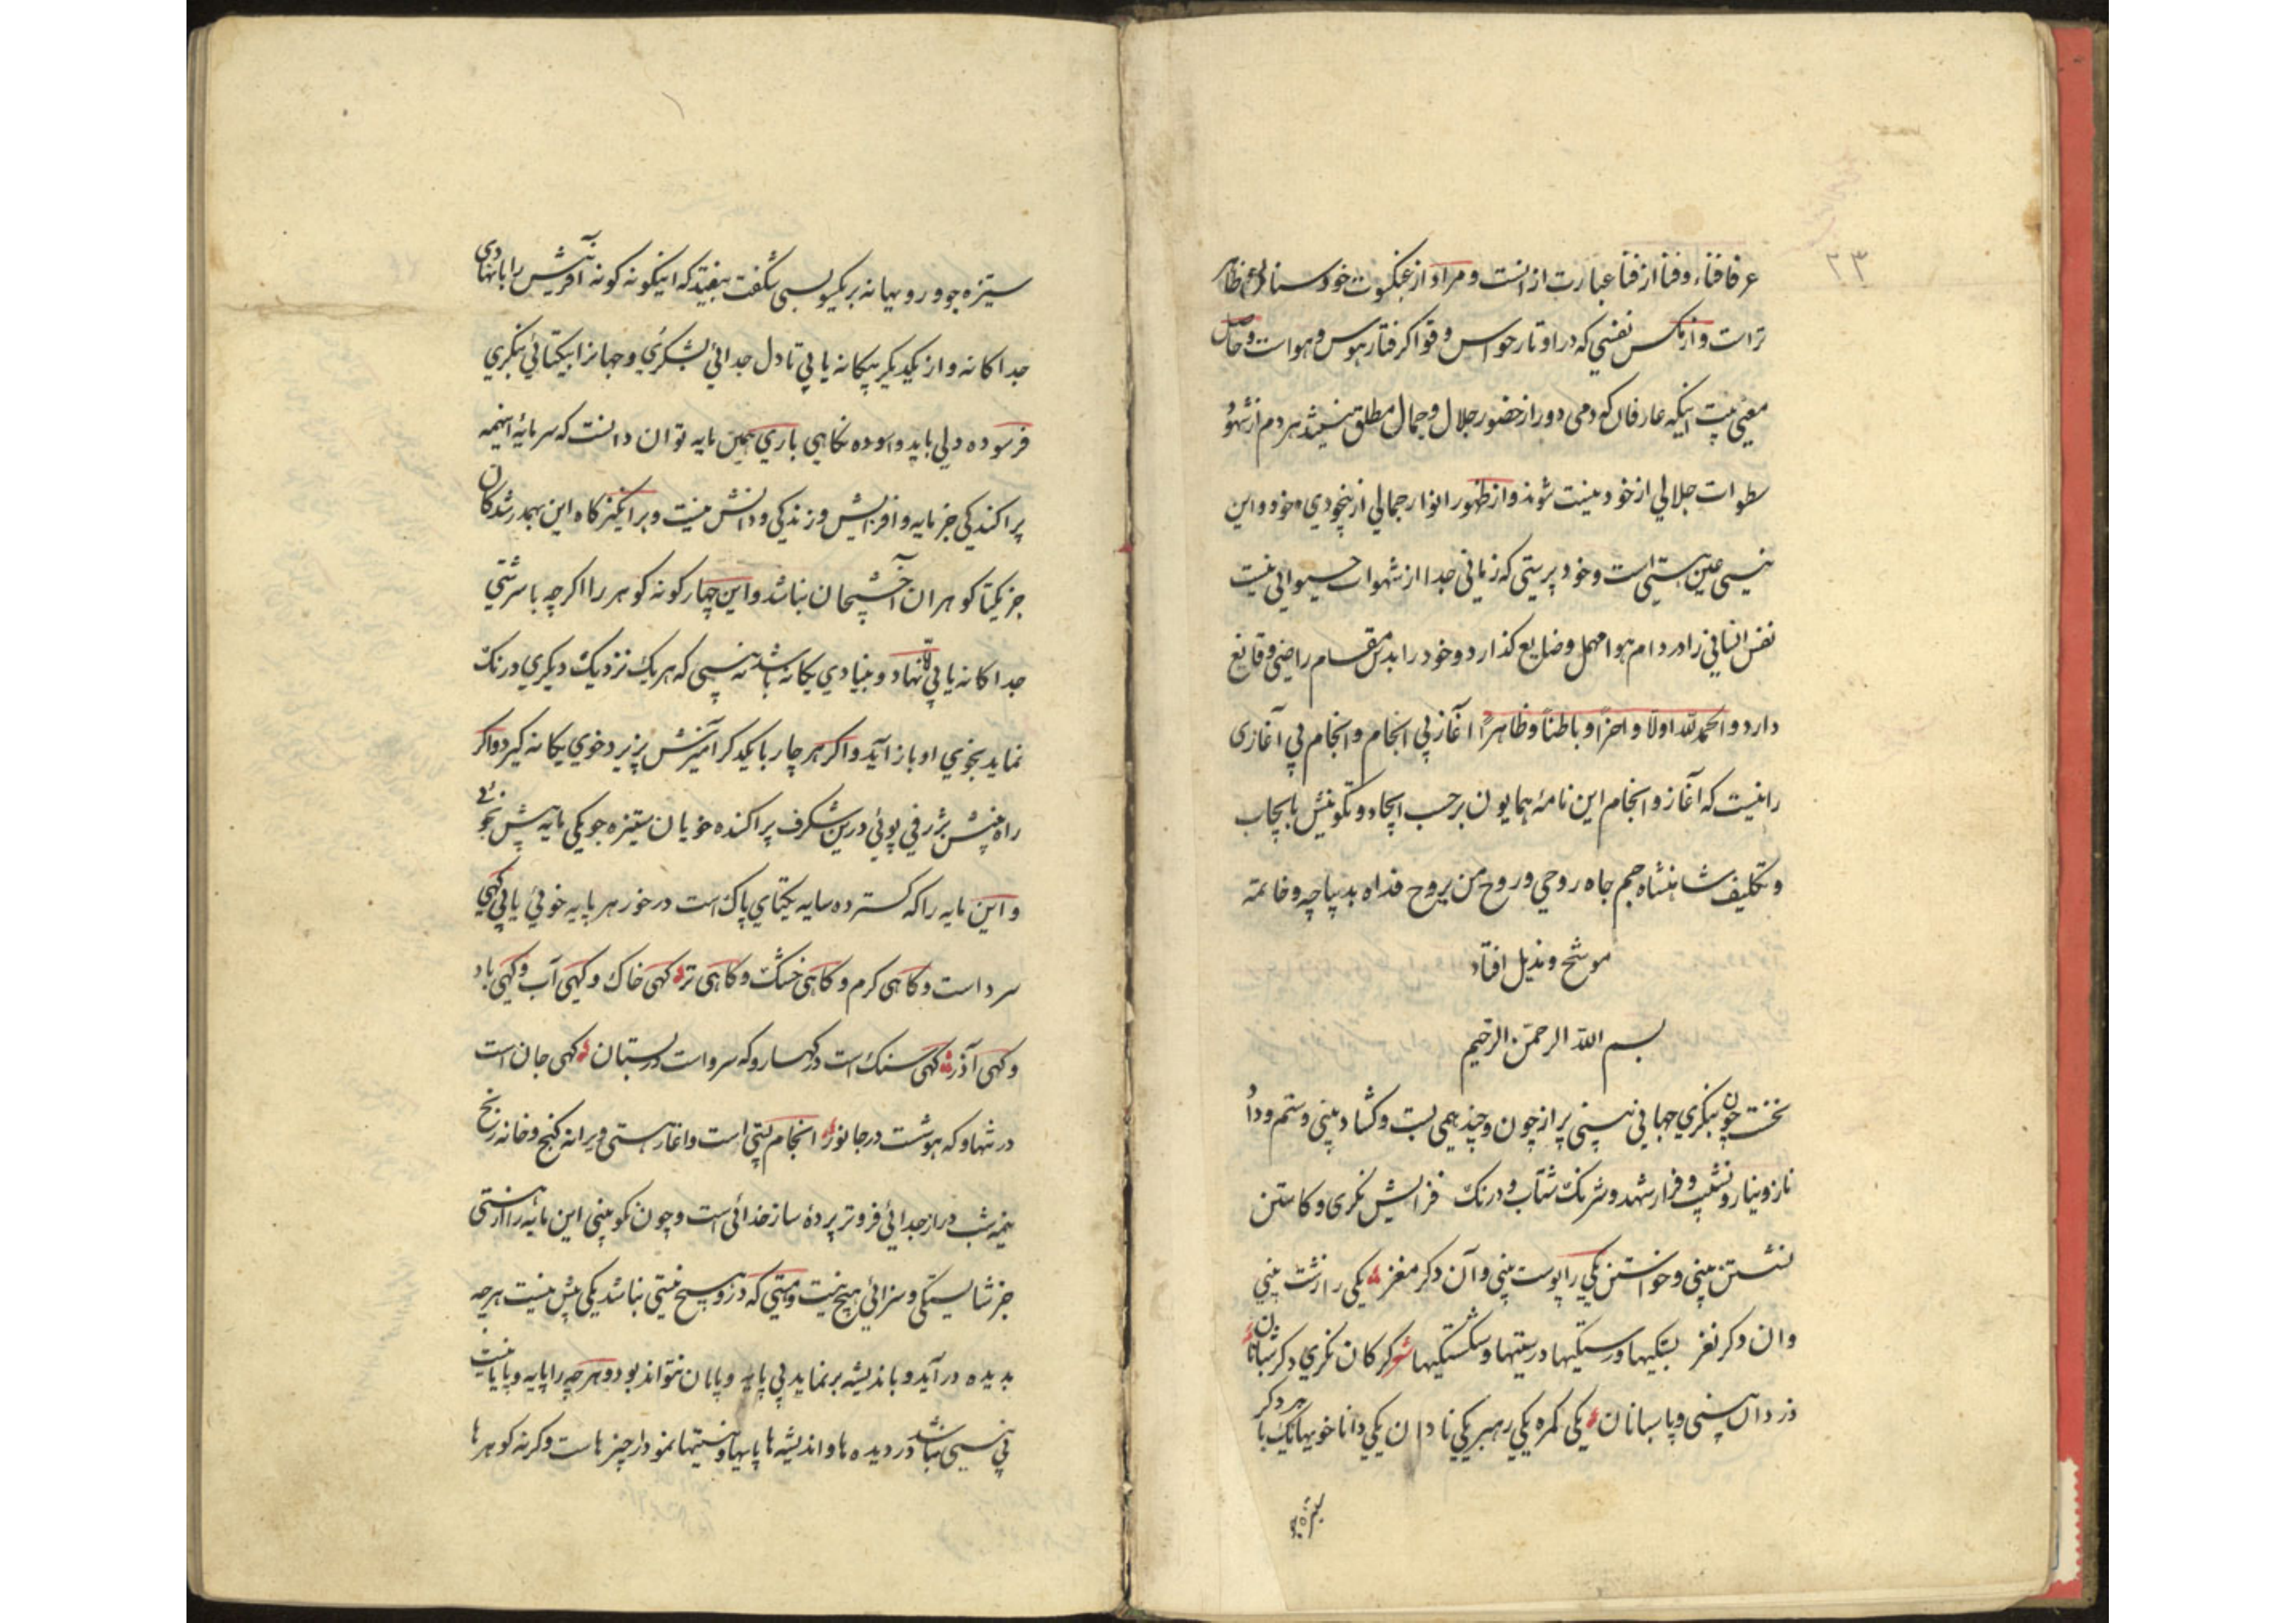 ۲۳
عرفا فناء و فنا از فنا عبارت از انست و مراد از عنکبوت خود
تراست و از مکس نفسی که در اوتار حواس و قوا کرفتار هوس و هواست و حاصل
معنی بیت اینکه عارفان که دمی دور از حضور جلال و جمال مطلق نیند هر دم از شهود
سطوات جلالی از خود نیست شوند و از ظهور انوار جمالی از بیخودی خود و این
نیستی عین هستی است و خود پرستی که زمانی جدا از شهوات حیوانی نیست
نفس انسانی را در دام هوا مهمل و ضایع کذارد و خود را بدین مقام راضی و قانع
دارد والحمد لله اولا و اخرا و باطنا و ظاهرا آغاز بی انجام و انجام بی آغازی
راست که آغاز و انجام این نامهٔ همایون برحسب ایجاد و تکوینش با یجاب
و تکلیف شاهنشاه جم جاه روحی و روح من یروح فداه بدیباچه و خاتمه
موشح و مذیل افتاد
بسم الله الرحمن الرحیم
نخست چون بنکری جهانی بینی پر از چون و چند همی بست و کشاد بینی و ستم و داد
ناز و نیاز و نشیب و فراز شهد و شرنک شتاب و درنک فزایش نکری و کاستن
نشستن بینی و خواستن یکی را پوست بینی و آن دکر مغز یکی را زشت بینی
وان دکر نغز بستکیها و رستکیها درستیها و شکستکیها کرکان نکری دکر شبانان
دزدان بینی و پاسبانان یکی کمره یکی رهبر یکی نادان یکی دانا خویها یک با دکر
ستیزه جو و رویها نه بر یکسو بسی شکفت بیفتد که اینکونه کونه آفرینش را با نهادی
جداکانه و از یکدیکر بیکانه یابی تا دل جدائی بشکری و جهانرا بیکتائی بنکری
فرسوده دلی باید و اسوده نکاهی باری همین مایه توان دانست که سرمایهٔ اینهمه
پراکندکی جز مایه و افزایش و زندکی و دانش نیست و برانکیزکاه این همه رشدکان
جز یکتا کوهران آخشیجان نباشد و این چهار کونه کوهر را اکرچه با سرشتی
جداکانه یابی نهاد و بنیادی یکانه باشد نه بینی که هر یک نزدیک دیکری درنک
نماید بخوی او باز آید و اکر هر چار با یکدکر آمیزش پزیرد خوی یکانه کیرد و اکر
راه بینش بژرفی پوئی درین شکرف پراکنده خویان ستیزه جو یکی مایه بیش نجوئی
و این مایه را که کسترده سایه یکتای پاک است در خور هر پایه خوئی یابی کهی
سرد است و کاهی کرم و کاهی خشک و کاهی تر کهی خاک و کهی آب و کهی باد
و کهی آذر کهی سنک است در کهسار و که سرو است در بستان کهی جان است
در تنها و که هوشست در جانور انجام پستی است و اغاز هستی ویرانه کنج و خانه رنج
نیمه شب دراز جدائی فروتر پردهٔ ساز خدائی است و چون نکو بینی این مایه را از هستی
جز شایستکی و سزائی هیچ نیست و هستی که در او هیچ نیستی نباشد یکی بیش نیست هرچه
بدیده در آید و باندیشه برنماید بی پایه و پایان نتواند بود و هرچه را پایه و پایانست
بی نیستی نباشد در دیده ها و اندیشه ها پایها و نیستیها نمودار چیزهاست و کرنه کوهرها